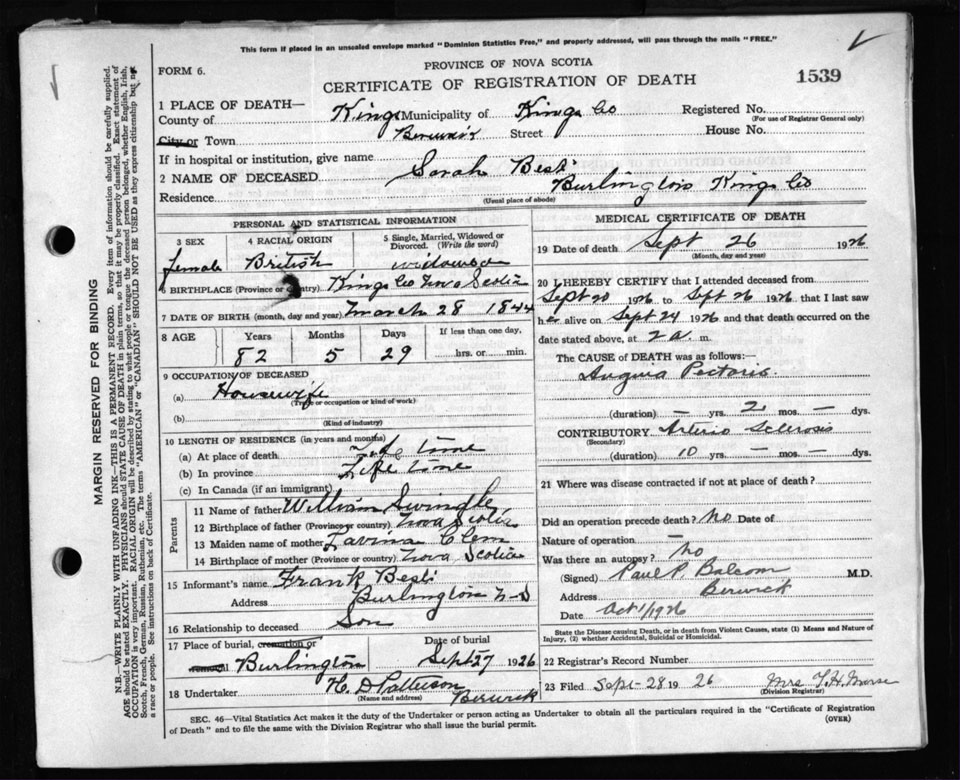 This form if placed in an unsealed envelope marked "Dominion Statistics Free," and properly addressed, will pass through the mails "FREE."
FORM 6.
PROVINCE OF NOVA SCOTIA
CERTIFICATE OF REGISTRATION OF DEATH
1539
1 PLACE OF DEATH—
County of Kings Municipality of Kings Co Registered No.
(For use of Registrar General only)
City or Town Berwick Street House No.
If in hospital or institution, give name
2 NAME OF DECEASED Sarah Best
Residence Burlington Kings Co
(Usual place of abode)
PERSONAL AND STATISTICAL INFORMATION
3 SEX
female
4 RACIAL ORIGIN
British
5 Single, Married, Widowed or Divorced. (Write the word)
widowed
6 BIRTHPLACE (Province or Country) Kings Co Nova Scotia
7 DATE OF BIRTH (month, day and year) March 28 1844
8 AGE Years Months Days If less than one day,
82 5 29 hrs. or min.
9 OCCUPATION OF DECEASED
(a) Housewife
(Trade or occupation or kind of work)
(b)
(Kind of industry)
10 LENGTH OF RESIDENCE (in years and months)
(a) At place of death Life time
(b) In province Life time
(c) In Canada (if an immigrant)
Parents
11 Name of father William Swindle
12 Birthplace of father (Province or country) Nova Scotia
13 Maiden name of mother Lavina Clem
14 Birthplace of mother (Province or country) Nova Scotia
15 Informant's name Frank Best
Address Burlington N-S
16 Relationship to deceased Son
17 Place of burial, cremation or Date of burial
removal Burlington Sept 27 1926
18 Undertaker H. D Patterson
(Name and address) Berwick
MEDICAL CERTIFICATE OF DEATH
19 Date of death Sept 26 1926
(Month, day and year)
20 I HEREBY CERTIFY that I attended deceased from
Sept 20 1926 to Sept 26 1926 that I last saw
her alive on Sept 24 1926 and that death occurred on the
date stated above, at 2 a. m.
The CAUSE of DEATH was as follows:—
Anguia Pectoris.
(duration) — yrs. 2 mos. — dys.
CONTRIBUTORY Arterio Sclerosis
(Secondary)
(duration) 10 yrs. — mos. — dys.
21 Where was disease contracted if not at place of death?
Did an operation precede death? No Date of
Nature of operation —
Was there an autopsy? No
(Signed) Paul P. Balcom M.D.
Address Berwick
Date Oct 1/1926
State the Disease causing Death, or in death from Violent Causes, state (1) Means and Nature of
Injury, (2) whether Accidental, Suicidal or Homicidal.
22 Registrar's Record Number
23 Filed Sept-28 1926 Mrs T. H. Morse
(Division Registrar)
SEC. 46—Vital Statistics Act makes it the duty of the Undertaker or person acting as Undertaker to obtain all the particulars required in the "Certificate of Registration
of Death" and to file the same with the Division Registrar who shall issue the burial permit.
(OVER)
MARGIN RESERVED FOR BINDING
N.B.—WRITE PLAINLY WITH UNFADING INK—THIS IS A PERMANENT RECORD. Every item of information should be carefully supplied.
AGE should be stated EXACTLY. PHYSICIANS should STATE CAUSE OF DEATH in plain terms, so that it may be properly classified. Exact statement of
OCCUPATION is very important. RACIAL ORIGIN will be described by stating to what people or tongue the deceased person belonged, whether English, Irish,
Scotch, French, German, Russian, Ruthenian, etc. The terms "AMERICAN" or "CANADIAN" SHOULD NOT BE USED as they express citizenship but not
a race or people. See instructions on back of Certificate.